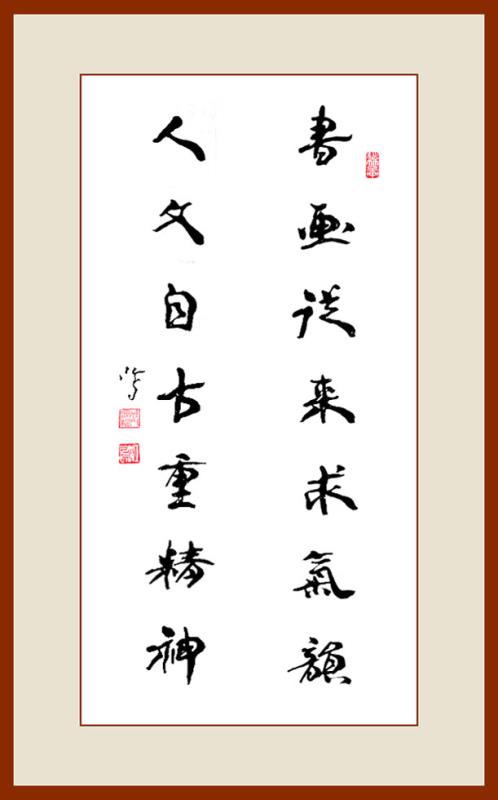 書画從来求氣韻
人文自古重精神